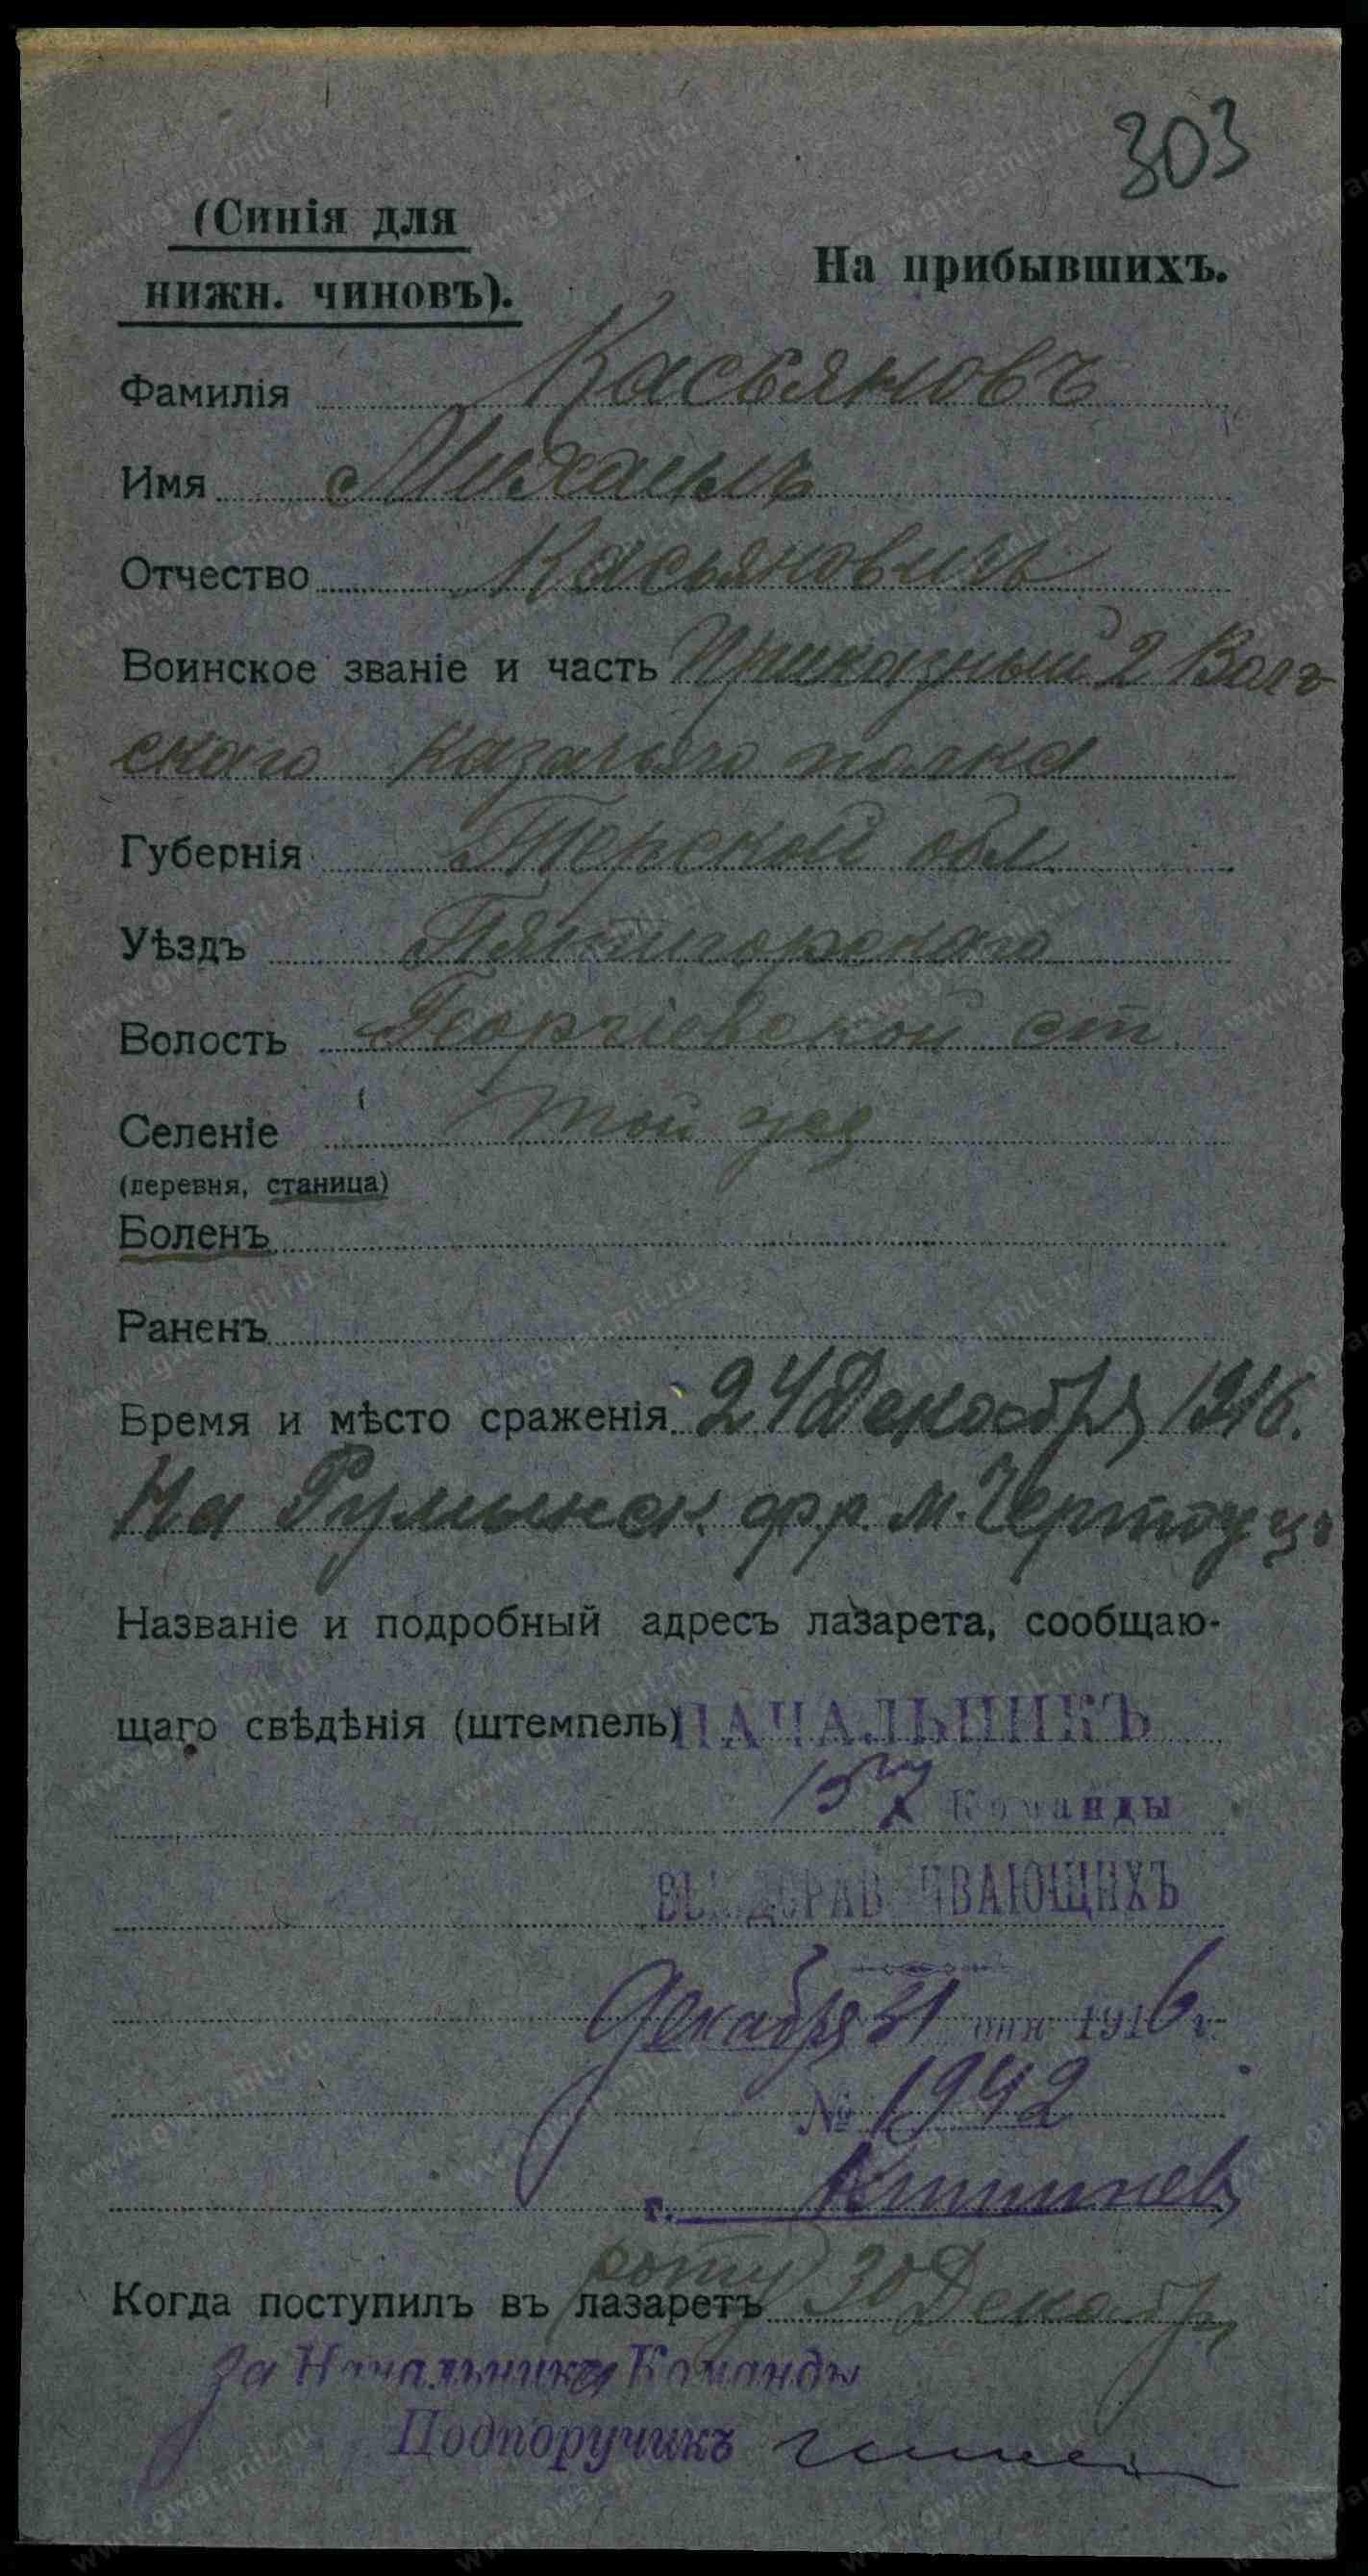 303
(Синія для
нижн. чиновъ).
На прибывшихъ.
Фамилія Касьяновъ
Имя Михаилъ
Отчество Касьяновичъ
Воинское званіе и часть Приказный 2 Волг-
скаго казачьяго полка
Губернія Терской обл.
Уѣздъ Пятигорскаго
Волость Георгіевской ст.
Селеніе той же
(деревня, станица)
Боленъ
Раненъ
Время и мѣсто сраженія 24 Декабря 1916.
На Румынск. фр. м.
Названіе и подробный адресъ лазарета, сообщаю-
щаго свѣдѣнія (штемпель) НАЧАЛЬНИКЪ
157 Команды
ВЫЗДОРАВЛИВАЮЩИХЪ
Декабря 31 дня 1916 г.
№ 1942
г. Кишинев
роту
Когда поступилъ въ лазаретъ 30 Декабр
За Начальника Команды
Подпоручикъ